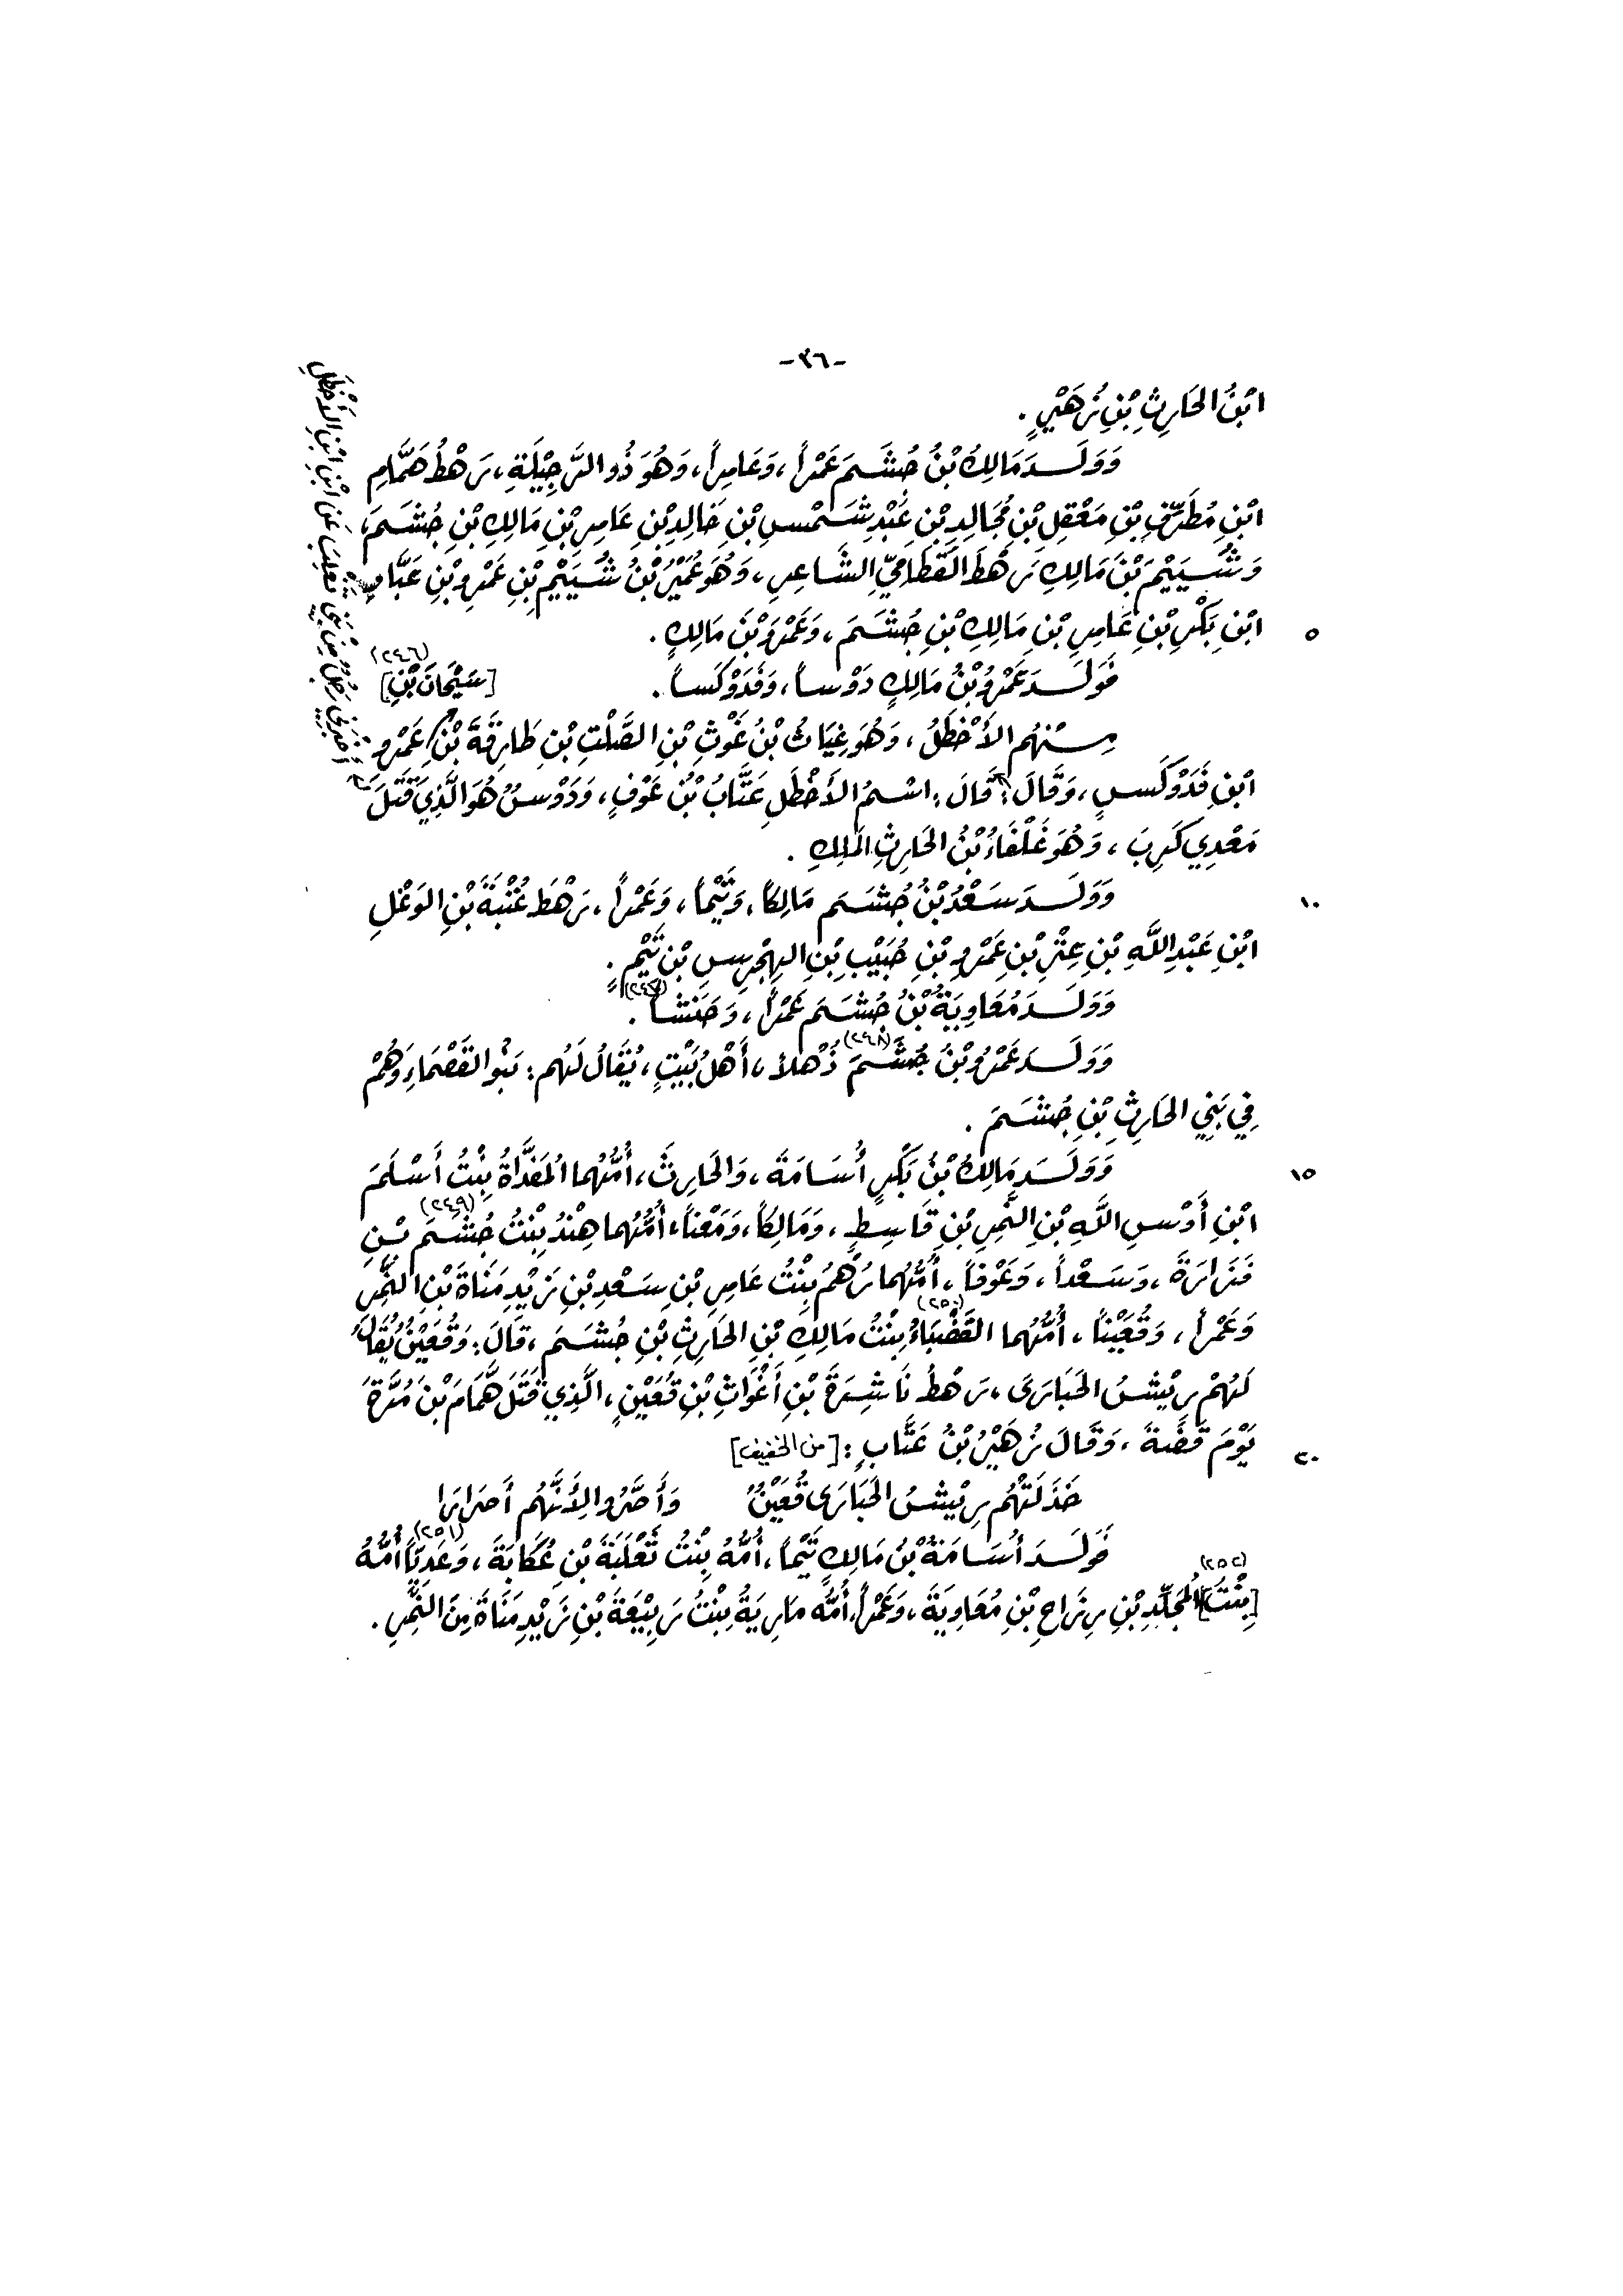 -٣٦-
ابْنُ الحَارِثِ بْنِ زُهَيْرٍ .
وَوَلَـدَ مَالِكُ بْنُ جُشَـمَ عَمْراً ، وَعَامِراً ، وَهُوَ ذُو الرَّجِيْلَةِ ، رَهْطُ هَمَّامِ
ابْنِ مُطَرِّفِ بْنِ مَعْقِلِ بْنِ مُجَالِدِ بْنِ عَبْدِ شَـمْسِ بْنِ خَالِدِ بْنِ عَامِرِ بْنِ مَالِكِ بْنِ جُشَـمَ ،
وَشُـيَيْمَ بْنَ مَالِكِ رَهْطَ القَطَامِيِّ الشَاعِرِ ، وَهُوَ عُمَيْرُ بْنُ شُـيَيْمِ بْنِ عَمْرِو بْنِ عَبَّادِ
٥ ابْنِ بَكْرِ بْنِ عَامِرِ بْنِ مَالِكِ بْنِ جُشَـمَ ، وَعَمْرَو بْنَ مَالِكٍ .
فَوَلَـدَ عَمْرُو بْنُ مَالِكٍ دَوْسـاً ، وَفَدَوْكَسـاً . [سَيْحَانَ بْنِ] (٢٤٦)
مِـنْهُم الأَخْطَلُ ، وَهُوَ غِيَاثُ بْنُ غَوْثِ بْنِ الصَّلْتِ بْنِ طَارِقَةَ بْنِ عَمْرِو
ابْنِ فَدَوْكَسٍ ، وَقَالَ : قَالَ : اسْـمُ الأَخْطَلِ عَتَّابُ بْنُ عَوْفٍ ، وَدَوْسٌ هُوَ الَّذِي قَتَلَ
مَعْدِي كَرِبَ ، وَهُوَ غَلْفَاءُ بْنُ الحَارِثِ المَلِكِ .
١٠ وَوَلَـدَ سَـعْدُ بْنُ جُشَـمَ مَالِكاً ، وَتَيْماً ، وَعَمْراً ، رَهْطَ عُتْبَةَ بْنِ الوَغْلِ
ابْنِ عَبْدِ اللَّهِ بْنِ عِتْرِ بْنِ عَمْرِو بْنِ حُبَيْبِ بْنِ الهِجْرِسِ بْنِ تَيْمٍ .
وَوَلَـدَ مُعَاوِيَةُ بْنُ جُشَـمَ عَمْراً ، وَحَنَشـاً (٢٤٧) .
وَوَلَـدَ عَمْرُو بْنُ جُشَـمَ (٢٤٨) ذُهْلاً ، أَهْلُ بَيْتٍ ، يُقَالُ لَهُم : بَنُو القَصْمَاءِ وَهُمْ
فِي بَنِي الحَارِثِ بْنِ جُشَـمَ .
١٥ وَوَلَـدَ مَالِكُ بْنُ بَكْرٍ أُسَامَةَ ، وَالحَارِثَ ، أُمُّهُما المُفَدَّاةُ بِنْتُ أَسْـلَمَ
ابْنِ أَوْسِ اللَّهِ بْنِ النَّمِرِ بْنِ قَاسِطٍ ، وَمَالِكاً ، وَمَعْناً ، أُمُّهُما هِنْدُ بِنْتُ جُشَـمَ (٢٤٩) بْـنِ
فَزَارَةَ ، وَسَـعْداً ، وَعَوْفاً ، أُمُّهُما رُهْمُ بِنْتُ عَامِرِ بْنِ سَـعْدِ بْنِ زَيْدِ مَنَاةَ بْنِ النَّمِرِ
وَعَمْراً ، وَقُعَيْناً ، أُمُّهُما القَضْبَاءُ (٢٥٠) بِنْتُ مَالِكِ بْنِ الحَارِثِ بْنِ جُشَـمَ ، قَالَ : وَقُعَيْنٌ يُقَالُ
لَهُمْ رِيْشُ الحَبَارَى ، رَهْطُ نَاشِرَةَ بْنِ أَغْوَاثِ بْنِ قُعَيْنٍ ، الَّذِي قَتَلَ هَمَّامَ بْنَ مُرَّةَ
٢٠ يَوْمَ قَضَّةَ ، وَقَالَ زُهَيْرُ بْنُ عَتَّابٍ : [من الخفيف]
خَذَلَتْهُم رِيْشُ الحَبَارَى قُعَيْنٌ وَأَصَرُّوا لِأَنَّهُم أَصَرَارَا
فَوَلَـدَ أُسَامَةُ بْنُ مَالِكٍ تَيْماً ، أُمُّهُ بِنْتُ ثَعْلَبَةَ بْنِ عُكَابَةَ ، وَعَدِيّاً (٢٥١) أُمُّهُ
[بِنْتُ] (٢٥٢) المُجَلِّدِ بْنِ رِزَاحِ بْنِ مُعَاوِيَةَ ، وَعَمْراً ، أُمُّه مَارِيَةُ بِنْتُ رَبِيْعَةَ بْنِ زَيْدِ مَنَاةَ مِنَ النَّمِرِ .
أخبرني رجل من بني تغلب عن ابن ابن الأخطل